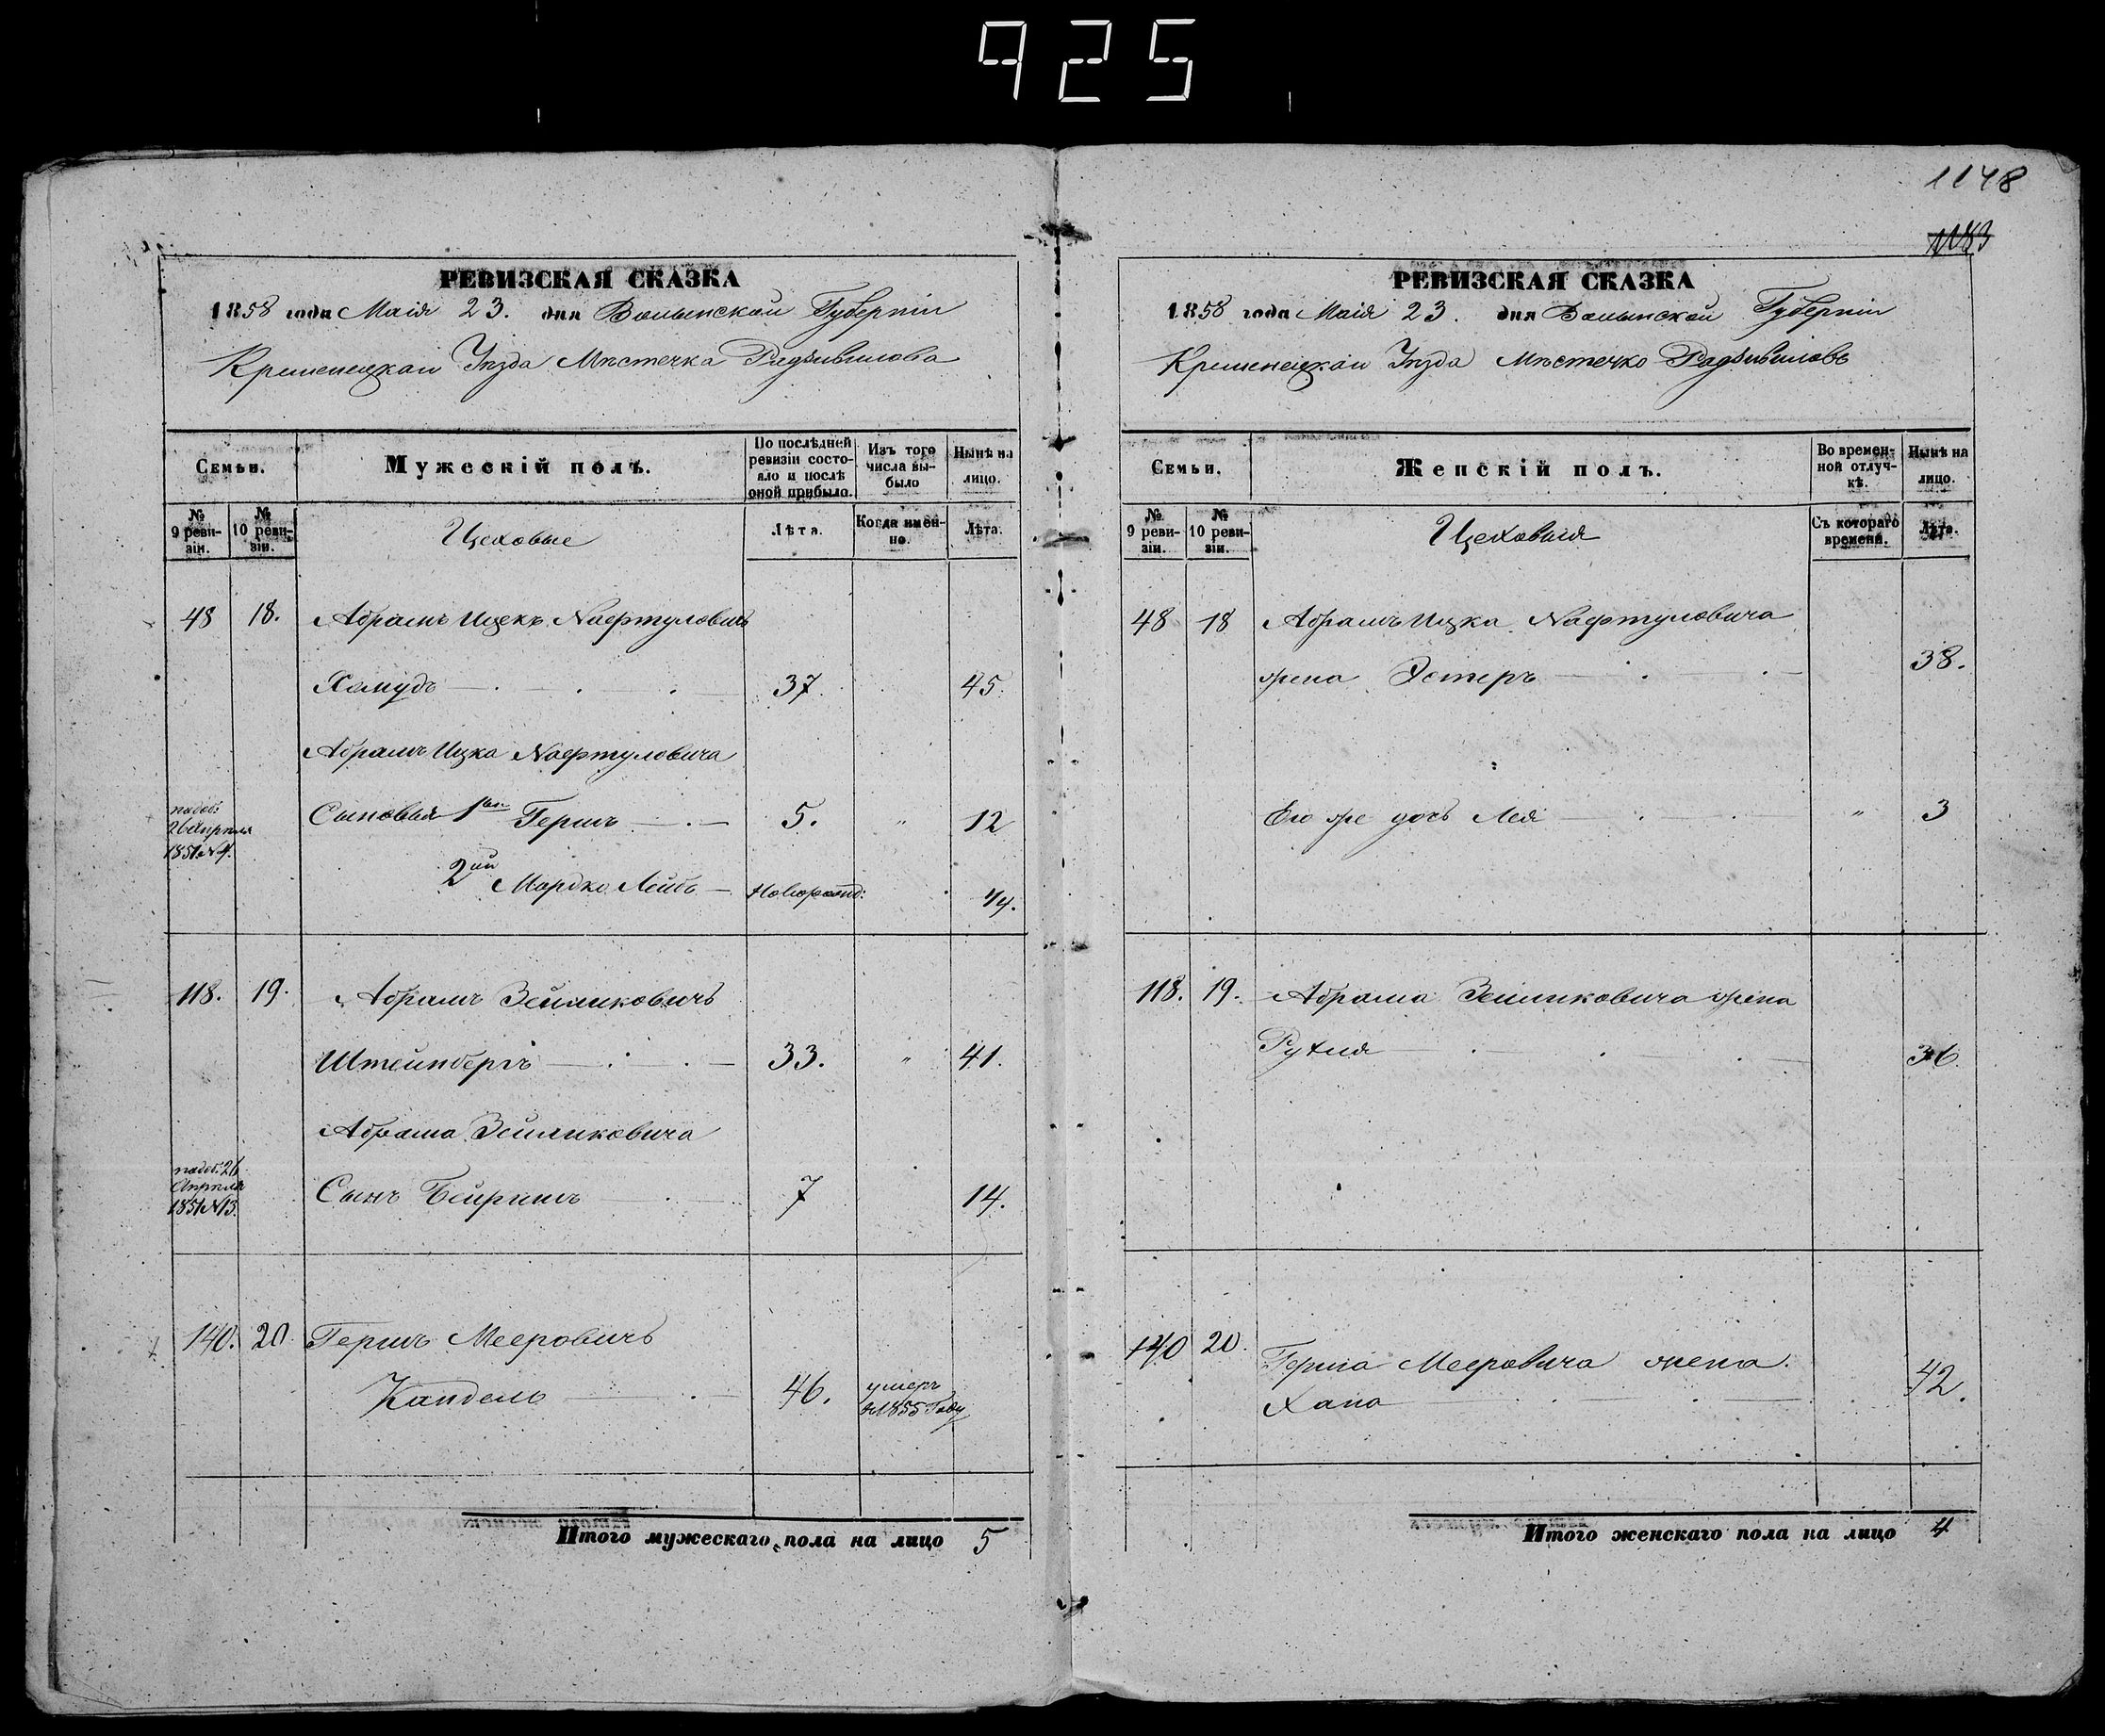 925
1148
1183
РЕВИЗСКАЯ СКАЗКА
1858 года Маія 23. дня Волынской Губерніи
Кременецкаи Уѣзда Мѣстечка Радзивилова
Семьи.
Мужескій полъ.
По послѣдней ревизіи состояло и послѣ оной прибыло.
Изъ того числа выбыло
Нынѣ на лицо.
№ 9 ревизіи.
№ 10 ревизіи.
Цеховые
Лѣта.
Когда именно.
Лѣта.
48 18. Абрамъ Ицекъ Нафтуловичъ
Хамудъ 37. 45.
Абрамъ Ицка Нафтуловича
Сыновья 1ый Гершъ 5. " 12
надоб: 26 Апрѣля 1851 № 4.
2ий Мордко Лейбъ Новорожд: 1/4.
118. 19. Абрамъ Зейликовичъ
Штейнбергъ 33. " 41.
Абрама Зейликовича
Сынъ Бейришъ 7 14.
надоб: 26 Апрѣля 1851 № 13.
140. 20 Гершъ Мееровичъ
Кандель 46. умеръ въ 1855 Году
Итого мужескаго пола на лицо 5
РЕВИЗСКАЯ СКАЗКА
1858 года Маія 23. дня Волынской Губерніи
Кременецкаи Уѣзда Мѣстечко Радзивиловъ
Семьи.
Женскій полъ.
Во временной отлучкѣ.
Нынѣ на лицо.
№ 9 ревизіи.
№ 10 ревизіи.
Цеховыя
Съ котораго времени.
Лѣта.
48 18 Абрамъ Ицка Нафтуловича
жена Эстеръ 38.
Его же дочь Лея " 3
118. 19. Абрама Зейликовича жена
Рухля 36.
140 20. Герша Мееровича жена.
Хана 42.
Итого женскаго пола на лицо 4